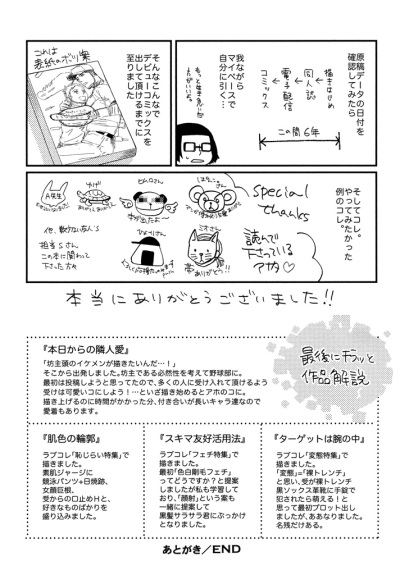 原稿データの日付を
確認してみたら
描きはじめ
↓
同人誌
↓
電子配信
↓
コミックス
この間6年
我ながら
マイペースで
自分に引く…
もっと生き急いだ
方がいい。
そんなこんなで
デビューコミックスを
出して頂けるまでに
至りました
これは
表紙のボツ案
そしてコレ。
やってみたかった
例のコレ。
Special
thanks
読んで
下さっている
アナタ♡
A先生
他、数えきれない人々
担当Sさん
この本に関わって
下さった方々
本当にありがとうございました!!
最後にチラッと
作品解説
『本日からの隣人愛』
「坊主頭のイケメンが描きたいんだ…!」
そこから出発しました。坊主である必然性を考えて野球部に。
最初は投稿しようと思ってたので、多くの人に受け入れて頂けるよう
受けは可愛いコにしよう!…といざ描き始めるとアホのコに。
描き上げるのに時間がかかった分、付き合いが長いキャラ達なので
愛着もあります。
『ターゲットは腕の中』
ラブコレ「変態特集」で
描きました。
「変態」=「裸トレンチ」
と思い、受が裸トレンチ
黒ソックス革靴に手錠で
犯されたら萌える!と
思って最初プロット出し
ましたが、ああなりました。
名残だけある。
『スキマ友好活用法』
ラブコレ「フェチ特集」で
描きました。
最初「色白剛毛フェチ」
ってどうですか?と提案
しましたが私も学習して
おり、「顔射」という案も
一緒に提案して
黒髪サラサラ君にぶっかけ
となりました。
『肌色の輪郭』
ラブコレ「恥じらい特集」で
描きました。
素肌ジャージに
競泳パンツ+日焼跡、
女顔巨根、
受からの口止めHと、
好きなものばかりを
盛り込みました。
あとがき/END